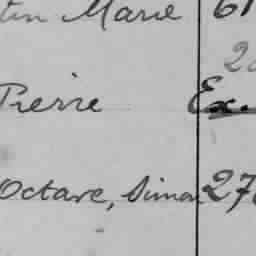 tin Marie 61
20
Pierre Ex.
Octave, Simon 27